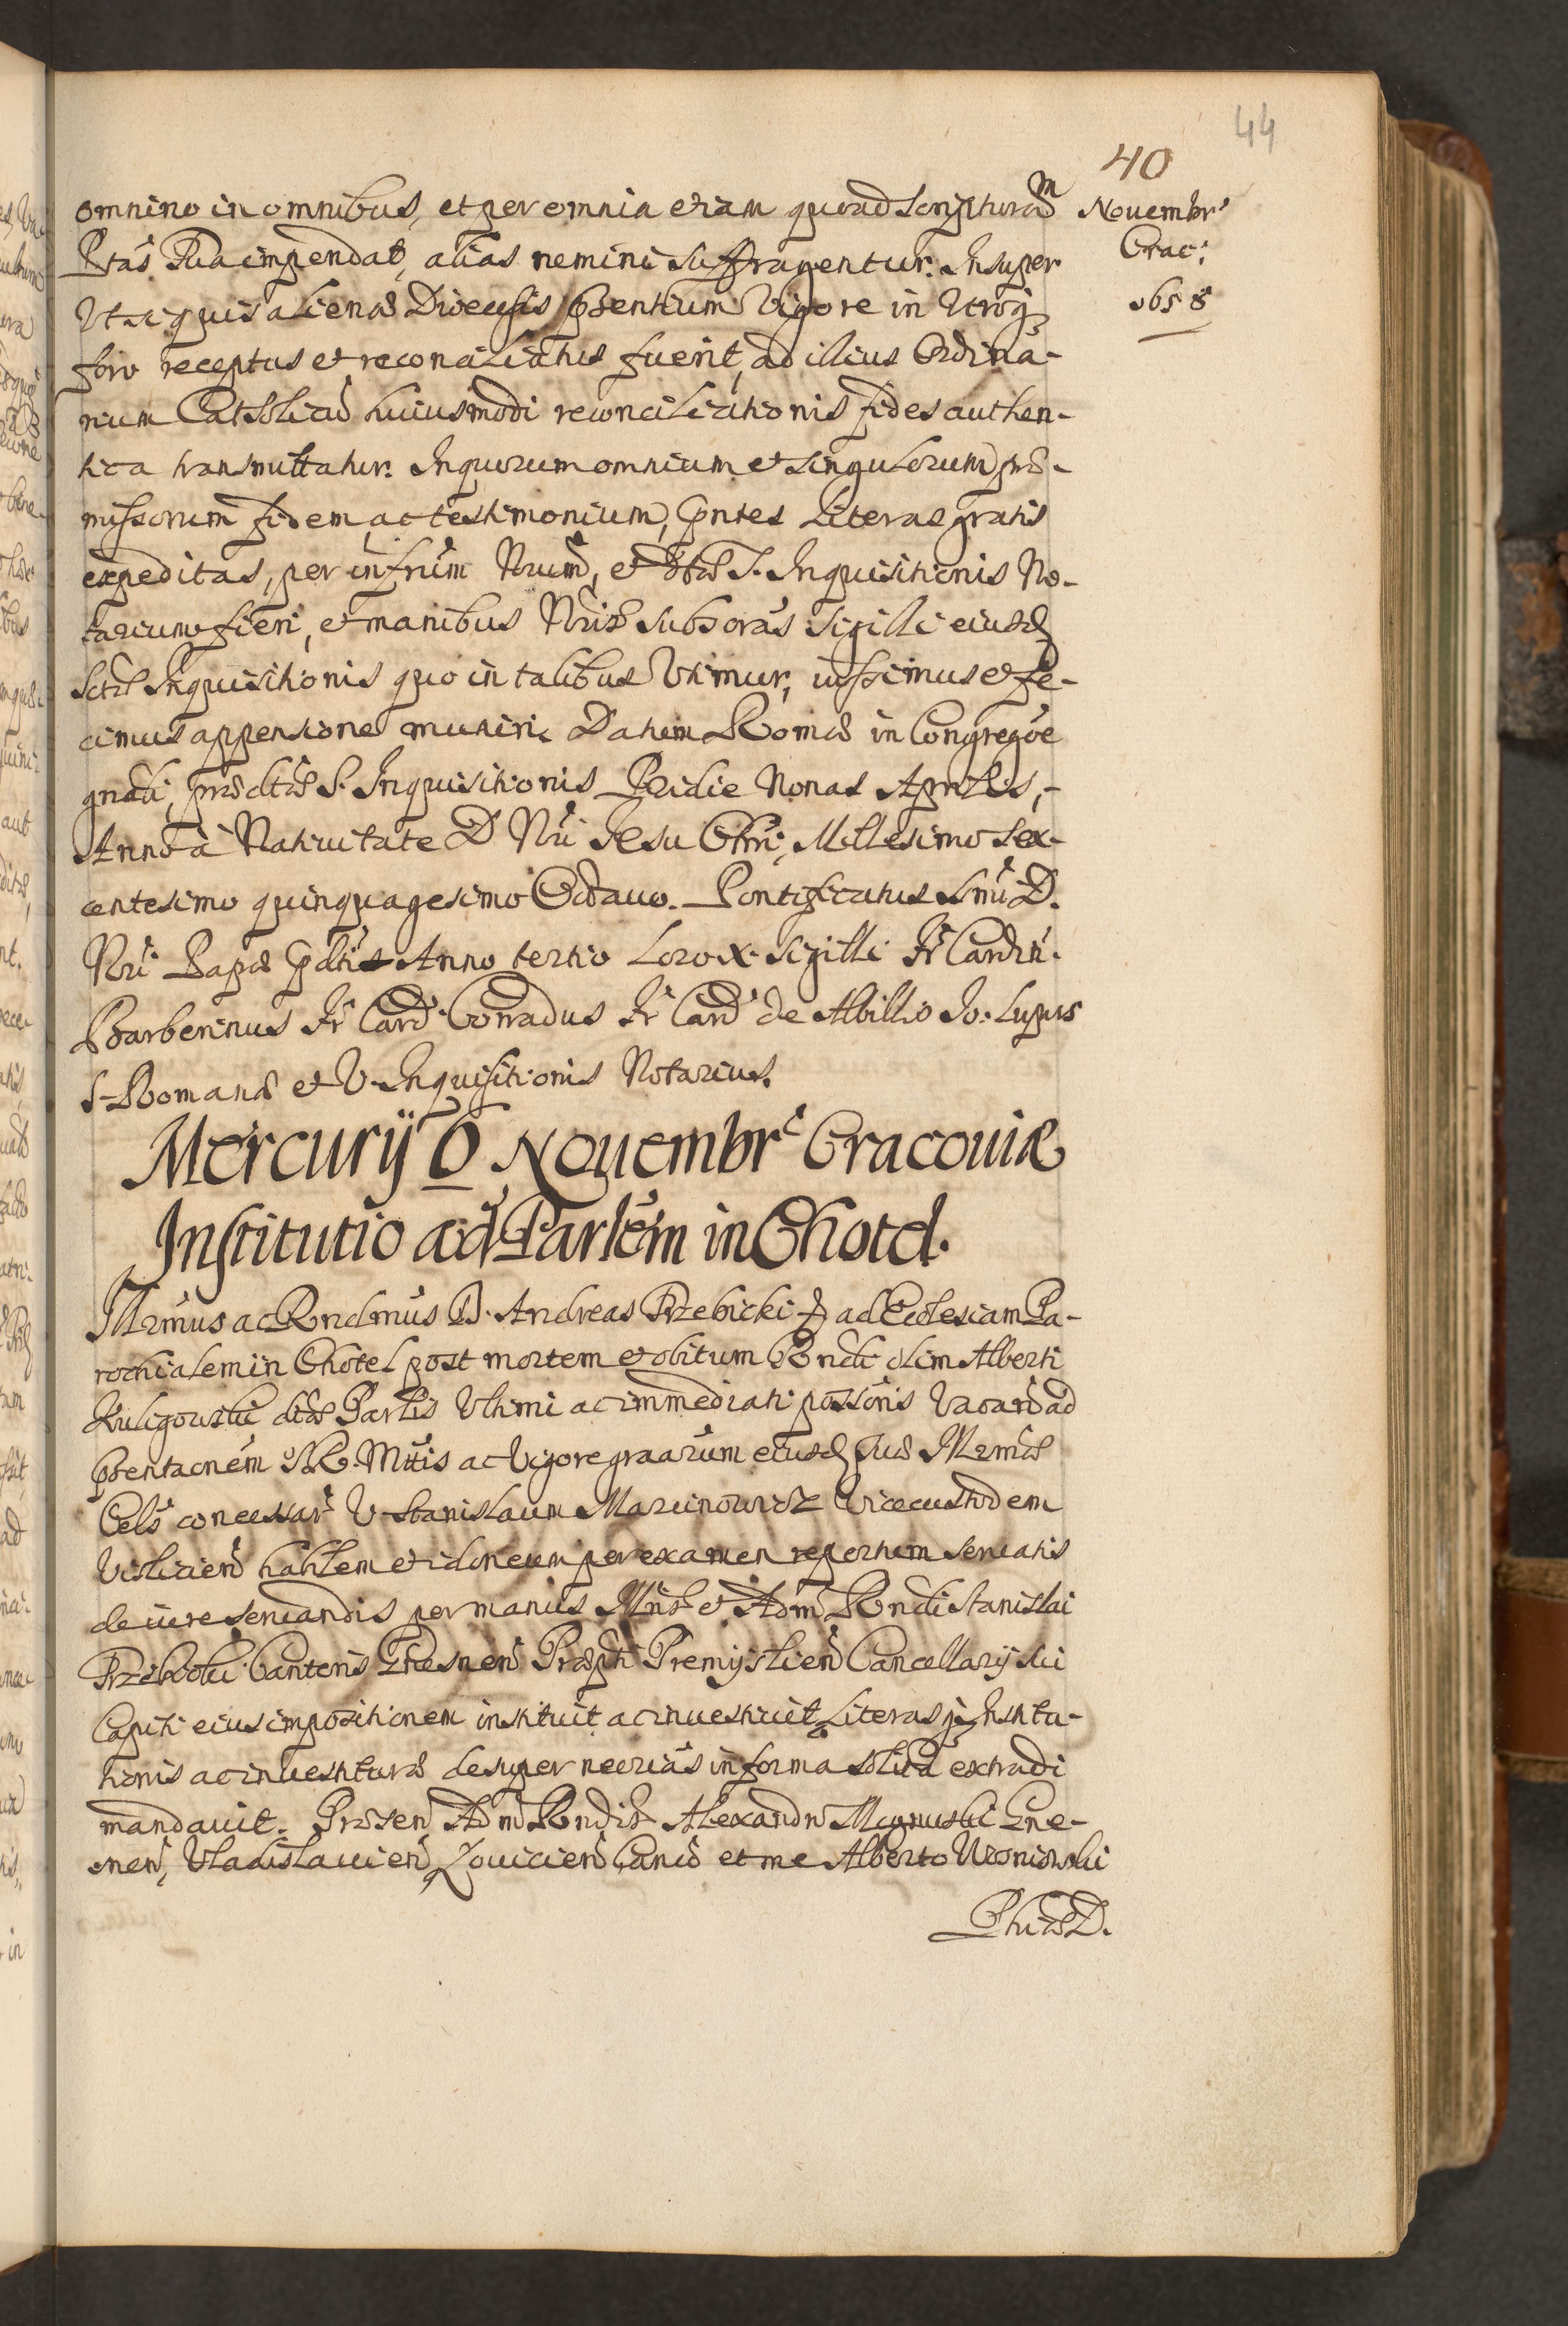 44
40
Nouembr
Crac:
1658
omnino in omnibus, et per omnia etiam quoad scripturam
Ptas Sua impendat, alias nemini suffragentur. Insuper
Ut si quis alienæ Diœcesis pnsentium Vigore in Utroq3
foro receptus et reconciliatus fuerit, ad illius Ordina-
rium Catholicũ huiusmodi reconciliationis fides authen-
tica transmittatur. In quorum omnium et singulorum præ-
missorum fidem ac testimonium, pntes Literas gratis
expeditas, per infrum Nrum, et S. Inquisitionis No-
tarium fieri, et manibus Nris subscras sigilli eiusd
Sctæ Inquisitionis quo in talibus Utimur, iussimus et fe-
cimus appensione muniri. Datum Romæ in Congregõe
gnãli, prædctæ S. Inquisitionis Pridie Nonas Apriles,-
Anno à Natiuitate D Nri Jesu Chri, Millesimo sex-
centesimo quinquagesimo Octauo. Pontificatus Smi D.
Nri Papæ pdtis Anno tertio Loco X Sigilli Fr Cardin.
Barberinus Fr Card. Conradus Fr Card de Albillio Jo: Lupus
S. Romanæ et V. Inquisitionis Notarius.
Mercurij 6 Nouembr Cracouiæ
Institutio ad Partem in Chotel.
Illrmus ac Rndmus D. Andreas Trzebicki ad Ecclesiam Pa-
rochialem in Chotel post mortem et obitum Rndi olim Alberti
Kuligowski dtæ Partis Ultimi ac immediati possoris Vacan ad
pnsentacnem S. R. Mttis ac Vigore graarum eiusd Suæ Illrmæ
Cels concessar V. Stanislaum Marcinowicz Vicecustodem
Vislicien habilem et idoneum per examen repertum seruatis
de iure seruandis per manus Illris et Adm Rndi Stanislai
Cantoris Gnesnen Præpti Premyslien Cancellarij sui
Capiti eius impositionem instituit ac inuestiuit Literasq3 Institu-
tionis ac inuestituræ desuper necrias in forma solita extradi
mandauit. Præsen Adm Rndis Alexandro Gne-
snen, Vladislauien Louicien Canco et me Alberto
Phiæ D.